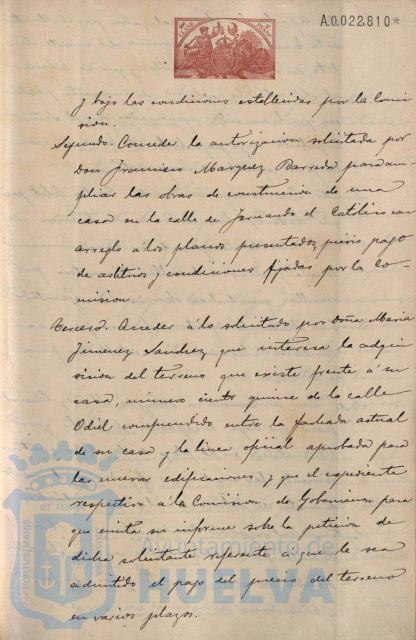 A.0.022.810*
y bajo las condiciones establecidas por la Comi
sion.
Segundo. Conceder la autorizacion solicitada por
Don Francisco Marquez Barreda para am-
pliar las obras de construccion de una
casa en la calle de Fernando el Católico con
arreglo á los planos presentados, previo pago
de arbitrios y condiciones fijadas por la Co-
mision
Tercero. Acceder á lo solicitado por Doña Maria
Jimenez Sanchez que interesa la adqui
sicion del terreno que existe frente á su
casa, número ciento quince de la calle
Odiel comprendido entre la fachada actual
de su casa y la linea oficial aprobada para
las nuevas edificaciones y que el expediente
respectivo á la Comision de Gobernacion para
que emita su informe sobre la peticion de
dicha solicitante referente á que le sea
admitido el pago del precio del terreno
en varios plazos.
Ayuntamiento de
HUELVA